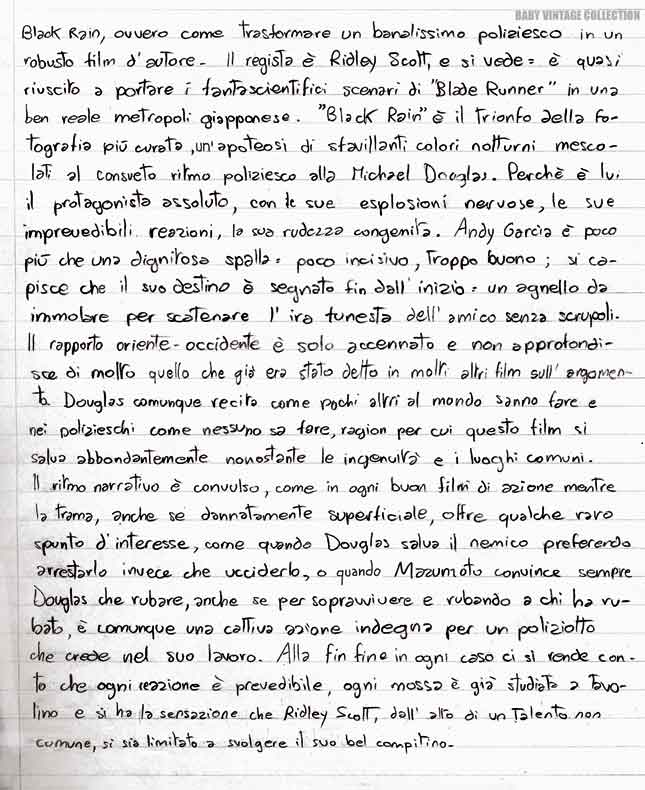 BABY VINTAGE COLLECTION
Black Rain, ovvero come trasformare un banalissimo poliziesco in un
robusto film d'autore - Il regista è Ridley Scott, e si vede: è quasi
riuscito a portare i fantascientifici scenari di "Blade Runner" in una
ben reale metropoli giapponese. "Black Rain" è il trionfo della fo-
tografia più curata, un'apoteosi di sfavillanti colori notturni mesco-
lati al consueto ritmo poliziesco alla Michael Douglas. Perchè è lui
il protagonista assoluto, con le sue esplosioni nervose, le sue
imprevedibili reazioni, la sua rudezza congenita. Andy Garcia è poco
più che una dignitosa spalla: poco incisivo, troppo buono; si ca-
pisce che il suo destino è segnato fin dall'inizio: un agnello da
immolare per scatenare l'ira funesta dell'amico senza scrupoli.
Il rapporto oriente-occidente è solo accennato e non approfondi-
sce di molto quello che già era stato detto in molti altri film sull'argomen-
to. Douglas comunque recita come pochi altri al mondo sanno fare e
nei polizieschi come nessuno sa fare, ragion per cui questo film si
salva abbondantemente nonostante le ingenuità e i luoghi comuni.
Il ritmo narrativo è convulso, come in ogni buon film di azione mentre
la trama, anche se dannatamente superficiale, offre qualche raro
spunto d'interesse, come quando Douglas salva il nemico preferendo
arrestarlo invece che ucciderlo, o quando Mazumoto convince sempre
Douglas che rubare, anche se per sopravvivere e rubando a chi ha ru-
bato, è comunque una cattiva azione indegna per un poliziotto
che crede nel suo lavoro. Alla fin fine in ogni caso ci si rende con-
to che ogni reazione è prevedibile, ogni mossa è già studiata a tavo-
lino e si ha la sensazione che Ridley Scott, dall'alto di un talento non
comune, si sia limitato a svolgere il suo bel compitino.